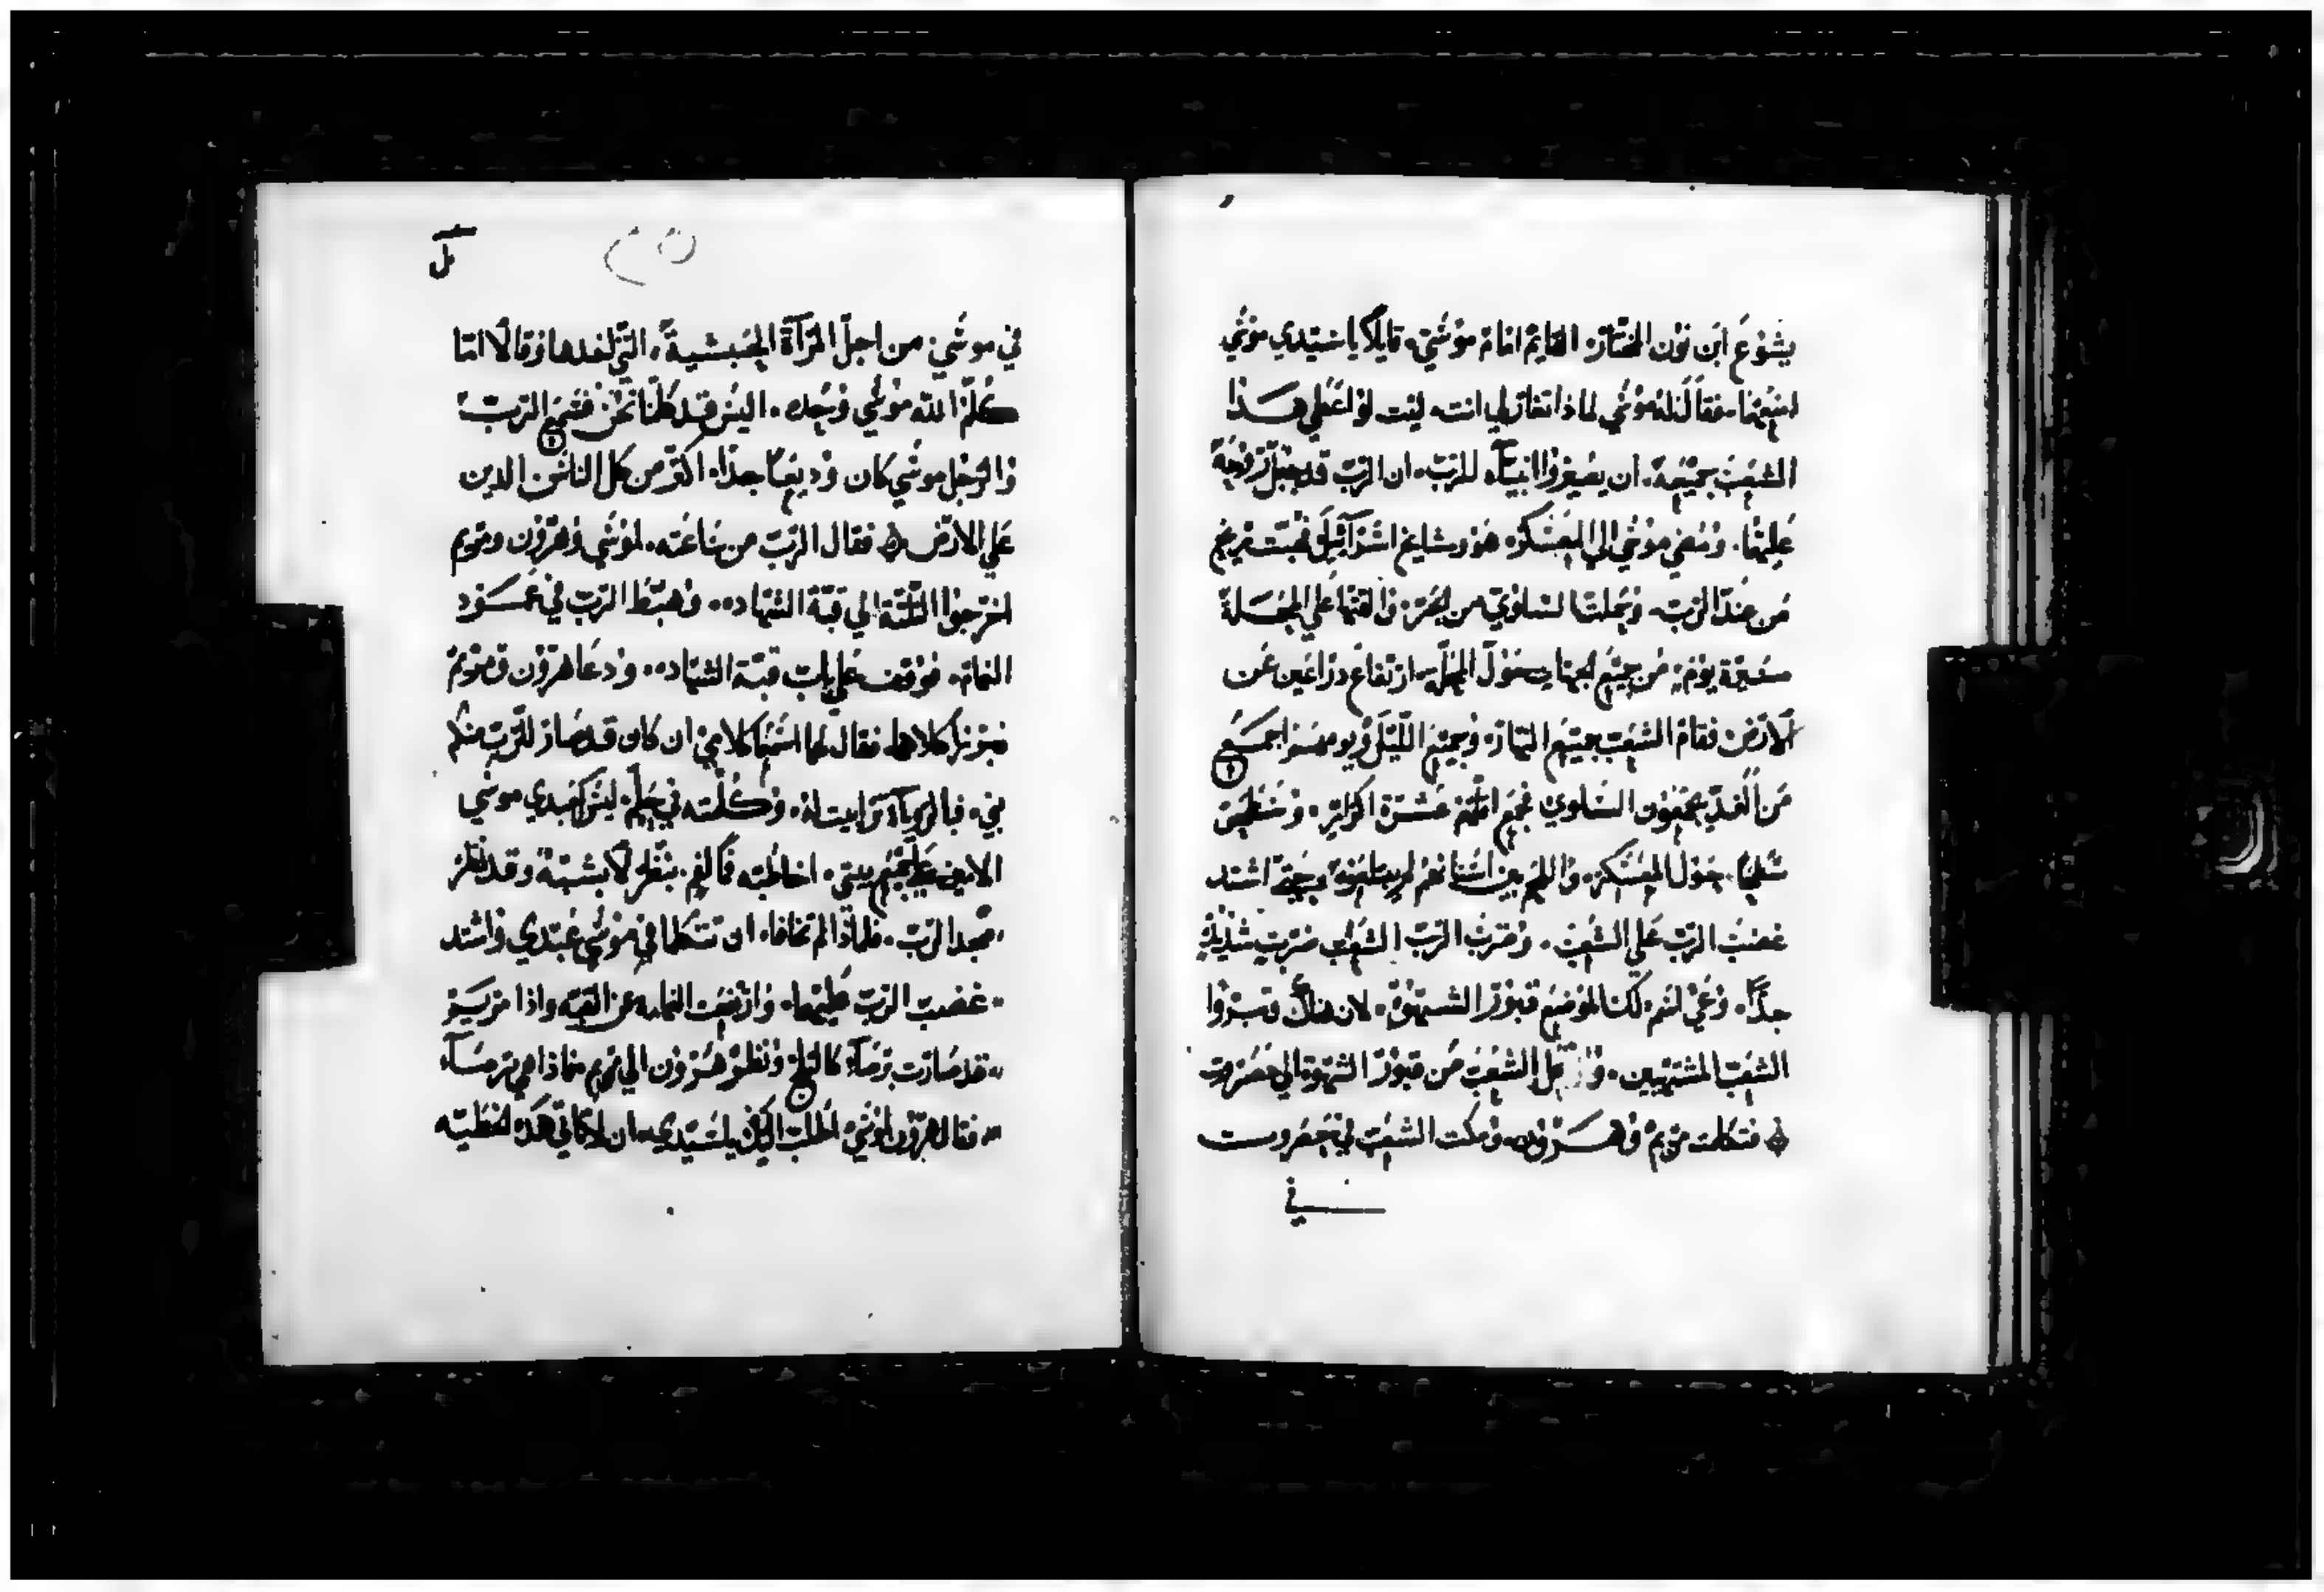 يشوع ابن نون المختار. القايم امام موسي. قايلاً يا سيدي موسي
امنعهما. فقال له موسي لماذا تغار لي انت. ليت لو اعطي هذا
الشعب جميعه. ان يصيروا انبيآء للرب. ان الرب قد جعل روحه
عليهما. ومضي موسي الي المعسكر. هو ومشايخ اسرآئيل فهبت ريح
من عند الرب. وحملت السلوي من البحر. والقتها علي المحلة
مسيرة يوم. من جميع الجهات حول المحلة. ارتفاع دراعين عن
الارض. فقام الشعب جميع النهار. وجميع الليل ويومهم اجمع
من الغد يجمعون السلوي فجمع اقلهم عشرة اكرار. وسطحين
سطيحا. حول المعسكر. واللحم بين اسنانهم لم يبتلعونه حتي اشتد
غضب الرب علي الشعب. وضرب الرب الشعب ضربه شديدة
جداً. ودعي اسم. ذلك الموضع قبور الشهوة. لان هناك قبروا
الشعب المشتهيين. وارتحل الشعب من قبور الشهوة الي حصروت
فتكلمت مريم وهرون. ومكت الشعب في حصروت
في
ل
في موسي. من اجل المرآة الحبشية. التي اخدها وقالا انما
كلم الله موسي وحده. اليس قد كلمنا نحن فسمع الرب
والرجل موسي كان وديعاً جداً. اكتر من كل الناس الدين
علي الارض فقال الرب من ساعته. لموسي وهرون ومريم
اخرجوا التلتة الي قبة الشهاده. وهبط الرب في عمود
الغمام. فوقف علي باب قبة الشهاده. ودعا هرون ومريم
فبرزا كلاهما. فقال لهما اسمعا كلامي ان كان قد صار للرب منكم
نبي. فبالرويآء ترايت له. وكلمته في حلم. ليس كعبدي موسي
الامين علي جميع بيتي. اخاطبه فم لفم. بنظر لا بشبه وقد نظر
مجد الرب. فلماذا لم تخافا. ان تتكلما في موسي عبدي واشتد
غضب الرب عليهما. وارتفعت الغمامه عن القبه واذا مريم
قد صارت برصآء كالثلج ونظر هرون الي مريم فماذا هي برصآء
فقال هرون لموسي اطلب اليك يا سيدي. ان لا تكافي هذه الخطيه